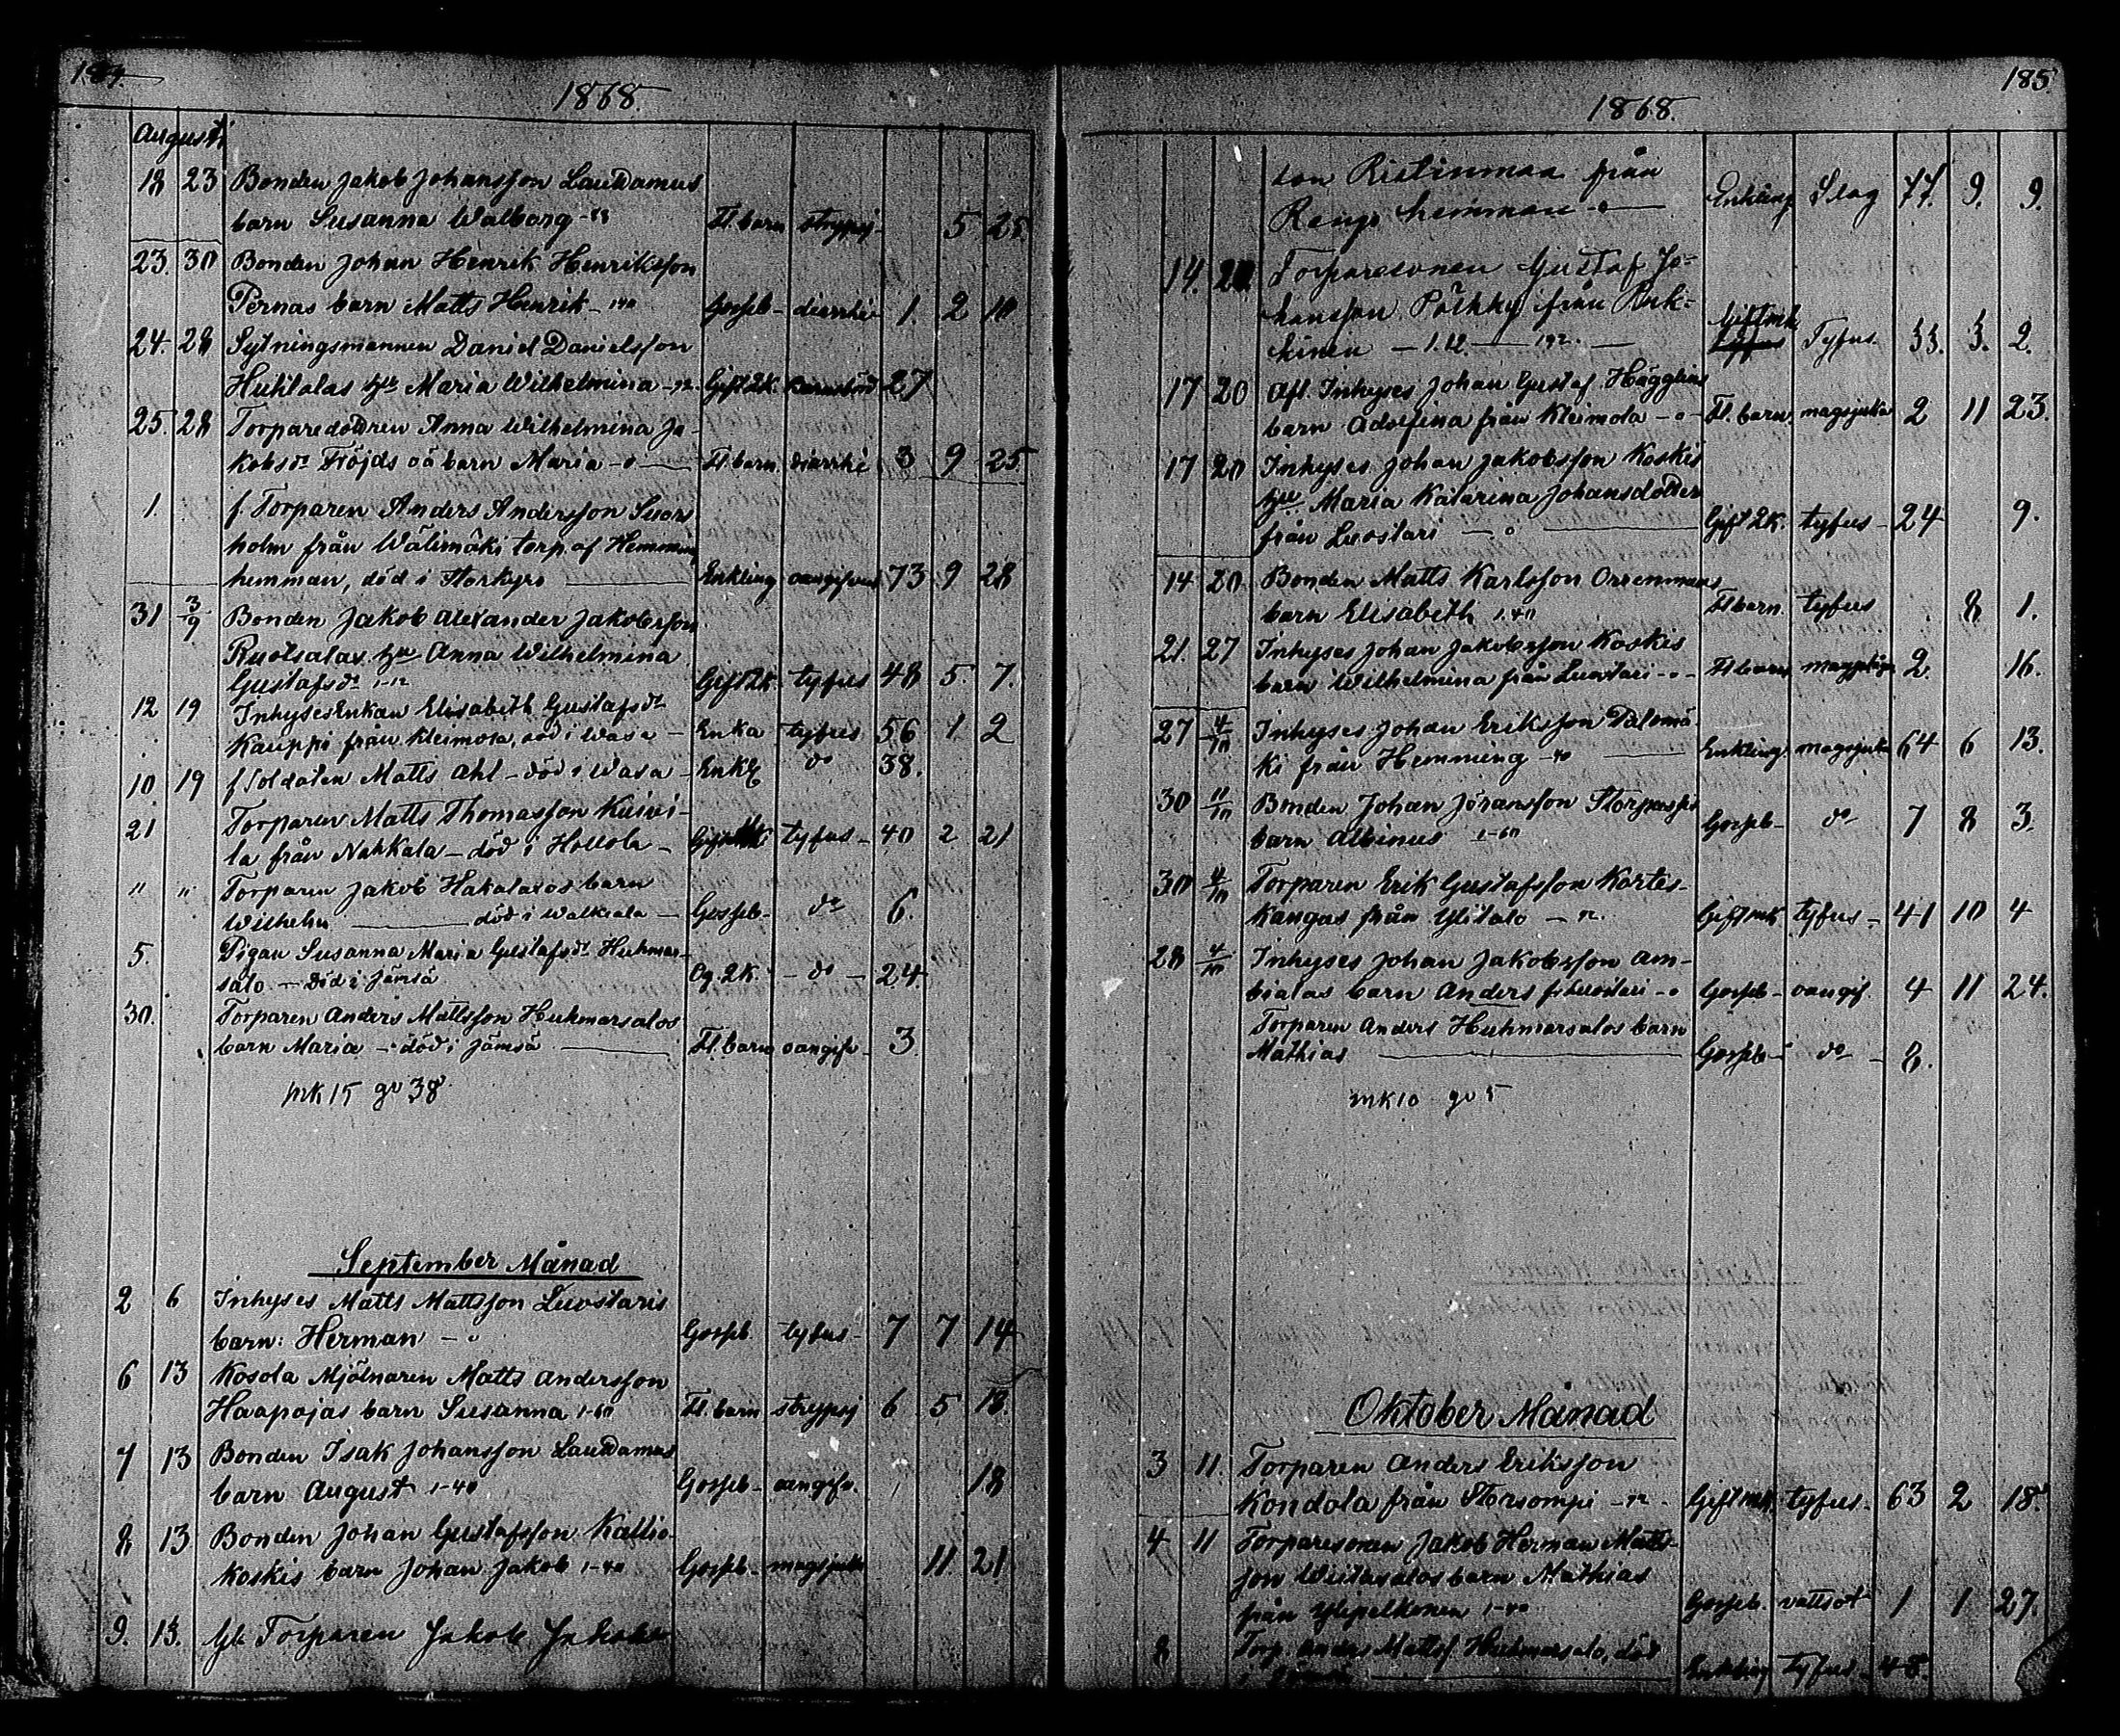 184.
1868.
Augusti
18 23 Bonden Jakob Johansson Lauddamus
barn Susanna Walborg Fl. barn strypsj 5 25.
23. 30 Bonden Johan Henrik Henriksson
Pernas barn Matts Henrik Gosseb- diarrhé 1. 2 10
24. 28 Sytningsmannen David Danielsson
Huhtalas hu Maria Wilhelmina Gift Qk. barnsbörd 27
25. 28 Torparedottren Anna Wilhelmina Ja-
kobsdr Fröjds oä barn Maria -o- Fl. barn diarrhé 3 9 25.
1. f. Torparen Anders Andersson Suors
holm från Wälimäki torp af Hemming
hemman, död i Storkyro Enkling oangifven 73 9 28
31 3/9 Bonden Jakob Alexander Jakobsson
Ruotsalas hu Anna Wilhelmina
Gustafsdr 1-12 Gift Qk. tyfus 48 5. 7.
12 19 Inhyses Enkan Elisabeth Gustafsdr
Kauppi från Kleimola, död i Wasa - Enka tyfus 56 1 2
10. 19 f Soldaten Matts Ahl - död i Wasa - Enkl do 38.
21 Torparen Matts Thomasson Kuivi-
la från Nahkala - död i Hollola - Gift Mk tyfus - 40 2 21
" " Torparen Jakob Hakalaxos barn
Wilhelm död i Walkiala - Gosseb- do 6.
5. Pigan Susanna Maria Gustafsdr Huhmar-
salo - död i Jämsä Og. Qk. - do - 24.
30. Torparen Anders Mattsson Huhmarsalos
barn Maria - död i Jämsä Fl. barn oangifv - 3.
mk 15 qv 38
September Månad
2 6 Inhyses Matts Mattsson Luostaris
barn: Herman - o Gosseb. tyfus - 7 7 14
6 13 Kosola Mjölnaren Matts Andersson
Haapojas barn Susanna 1-60 Fl. barn strypsj 6 5 18.
7 13 Bonden Isak Johansson Lauddamus
barn August 1-40 Gosseb- oangifv. 18
8 13 Bonden Johan Gustafsson Kallio-
koskis barn Johan Jakob 1-40 Gosseb- magsjuka 11. 21
9. 13. Torparen Jakob Jakobs
185
1868.
son Ristinmaa från
Rengo hemman -o- Enkling Slag 77. 9. 9.
14. 20. Torparesonen Gustaf Jo-
hansson Pölkky från Ruk-
kinen - 1.12. - Gift mk Tyfus. 33. 3. 2.
17 20 Afl. Inhyses Johan Gustaf Hägglins
barn Adolfina från Kleimola -o- Fl. barn. magsjuka 2 11 23.
17 20 Inhyses Johan Jakobsson Koskis
hu Maria Katarina Johansdotter
från Luostari - o Gift Qk. tyfus - 24 9.
14 20 Bonden Matts Karlsson Orrenmaas
barn Elisabeth 1.40 Fl barn. tyfus 8 1.
21. 27 Inhyses Johan Jakobsson Koskis
barn Wilhelmina från Luostari -o- Fl barn 2. 16.
27 4/10 Inhyses Johan Eriksson Palomä-
ki från Hemming Enkling. magsjuka 64 6 13.
30 11/10 Bonden Johan Jöransson Storpassis
barn Albinus 1-60 Gosseb- do 7 8 3.
30 4/10 Torparen Erik Gustafsson Kortes-
kangas från Ylitalo Gift mk tyfus - 41 10 4
28 4/10 Inhyses Johan Jakobsson Am-
bialas barn Anders fr. Luostari -o Gosseb- oangif. 4 11 24.
Torparen Anders Huhmarsalos barn
Mathias Gosseb- do - 8.
mk 10 qv 5
Oktober Månad
3 11. Torparen Anders Eriksson
Kondola från Storsompi Gift mk. tyfus. 63 2 18.
4 11 Torparesonen Jakob Herman Matts-
son Wiitasalos barn Mathias
från Ylipelkonen 1-40 Gosseb. vattsot 1 1 27.
8 Torp. Anders Mattss. Huhmarsalo, död
Enkling tyfus - 48.